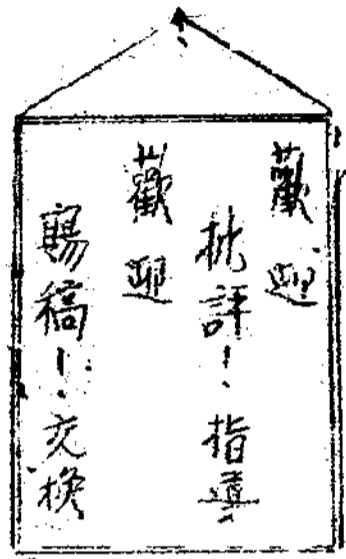 歡迎
批評!指導!
歡迎
賜稿!交換